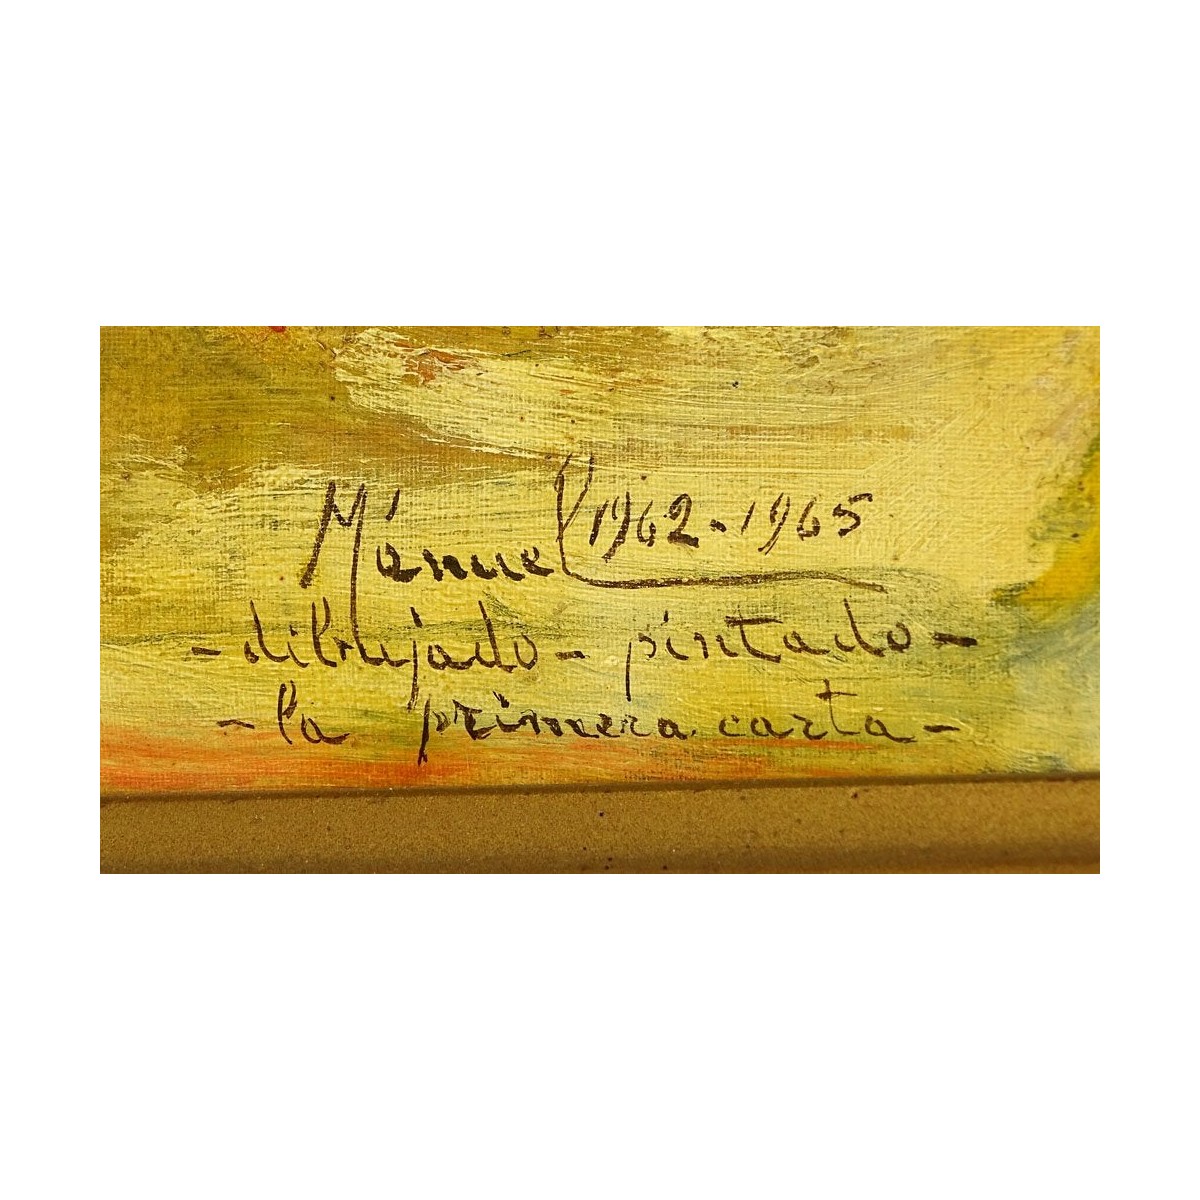 Mánuel 1962-1965
- dibujado - pintado -
- la primera carta -